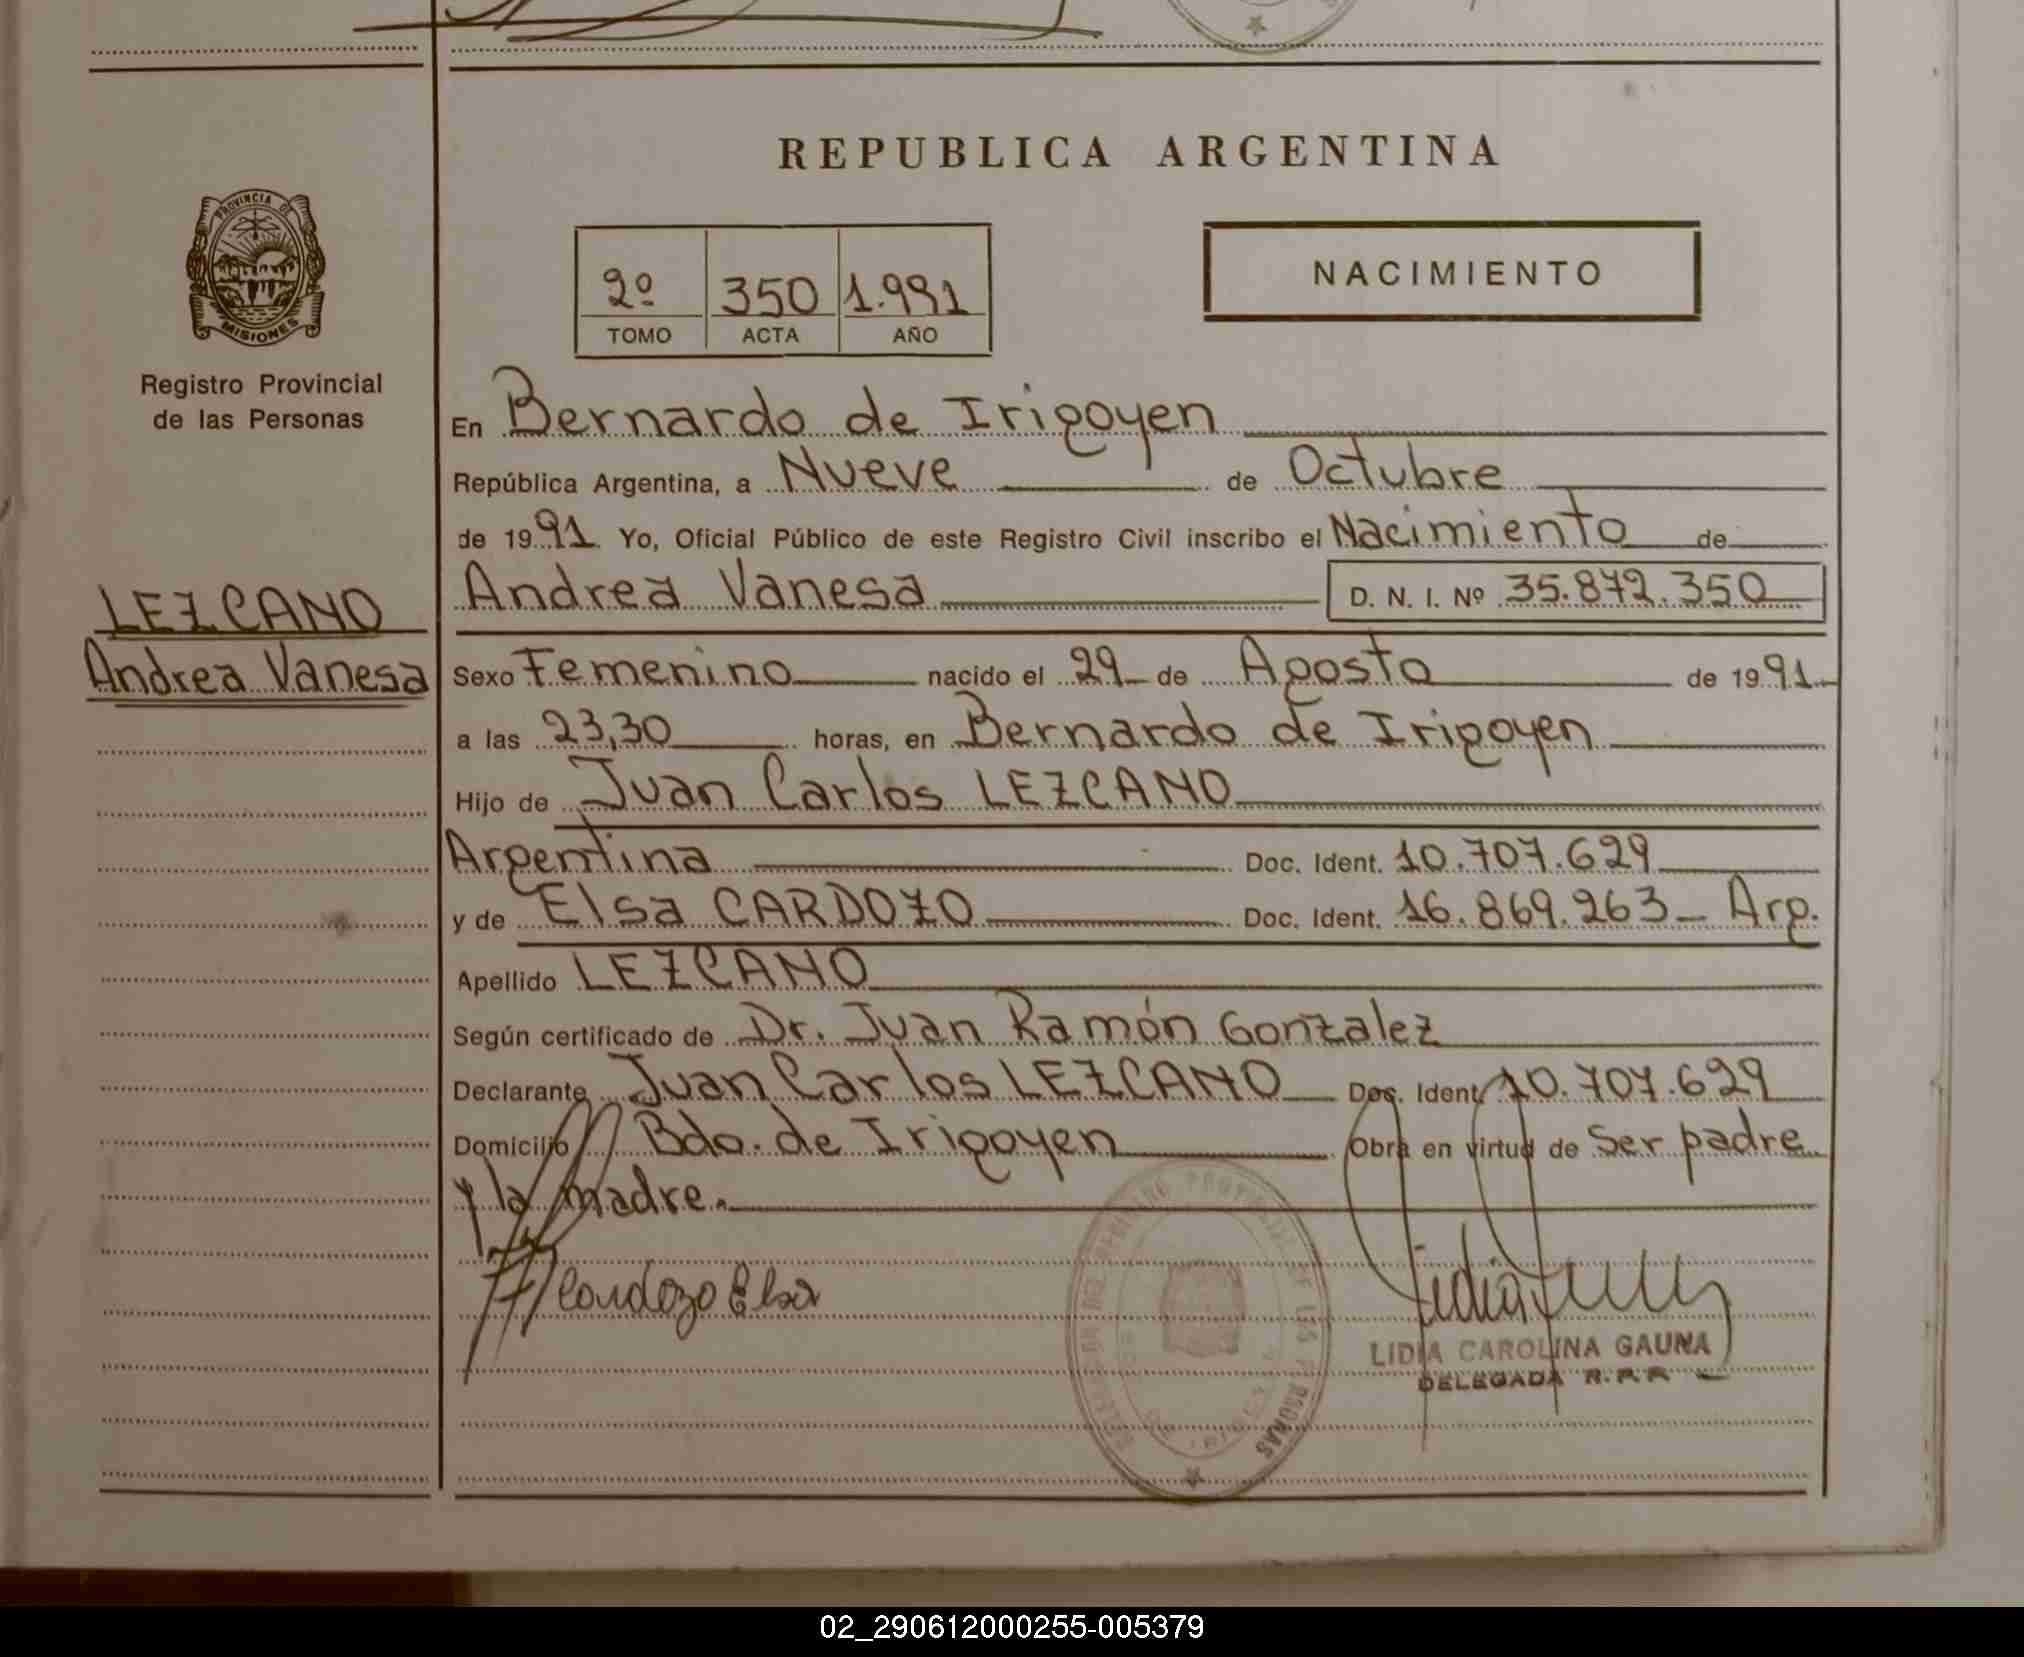 REPUBLICA ARGENTINA
PROVINCIA DE
MISIONES
Registro Provincial
de las Personas
2º 350 1.991
TOMO ACTA AÑO
NACIMIENTO
En Bernardo de Irigoyen
República Argentina, a Nueve de Octubre
de 1991 Yo, Oficial Público de este Registro Civil inscribo el Nacimiento de
LEZCANO
Andrea Vanesa
Andrea Vanesa D. N. I. Nº 35.872.350
Sexo Femenino nacido el 29 de Agosto de 1991
a las 23,30 horas, en Bernardo de Irigoyen
Hijo de Juan Carlos LEZCANO
Argentina Doc. Ident. 10.707.629
y de Elsa CARDOZO Doc. Ident. 16.869.263 Arg.
Apellido LEZCANO
Según certificado de Dr. Juan Ramón Gonzalez
Declarante Juan Carlos LEZCANO Doc. Ident. 10.707.629
Domicilio Bdo. de Irigoyen Obra en virtud de Ser padre
y la madre.
Cardozo Elsa
LIDIA CAROLINA GAUNA
DELEGADA R.P.P.
02_290612000255-005379